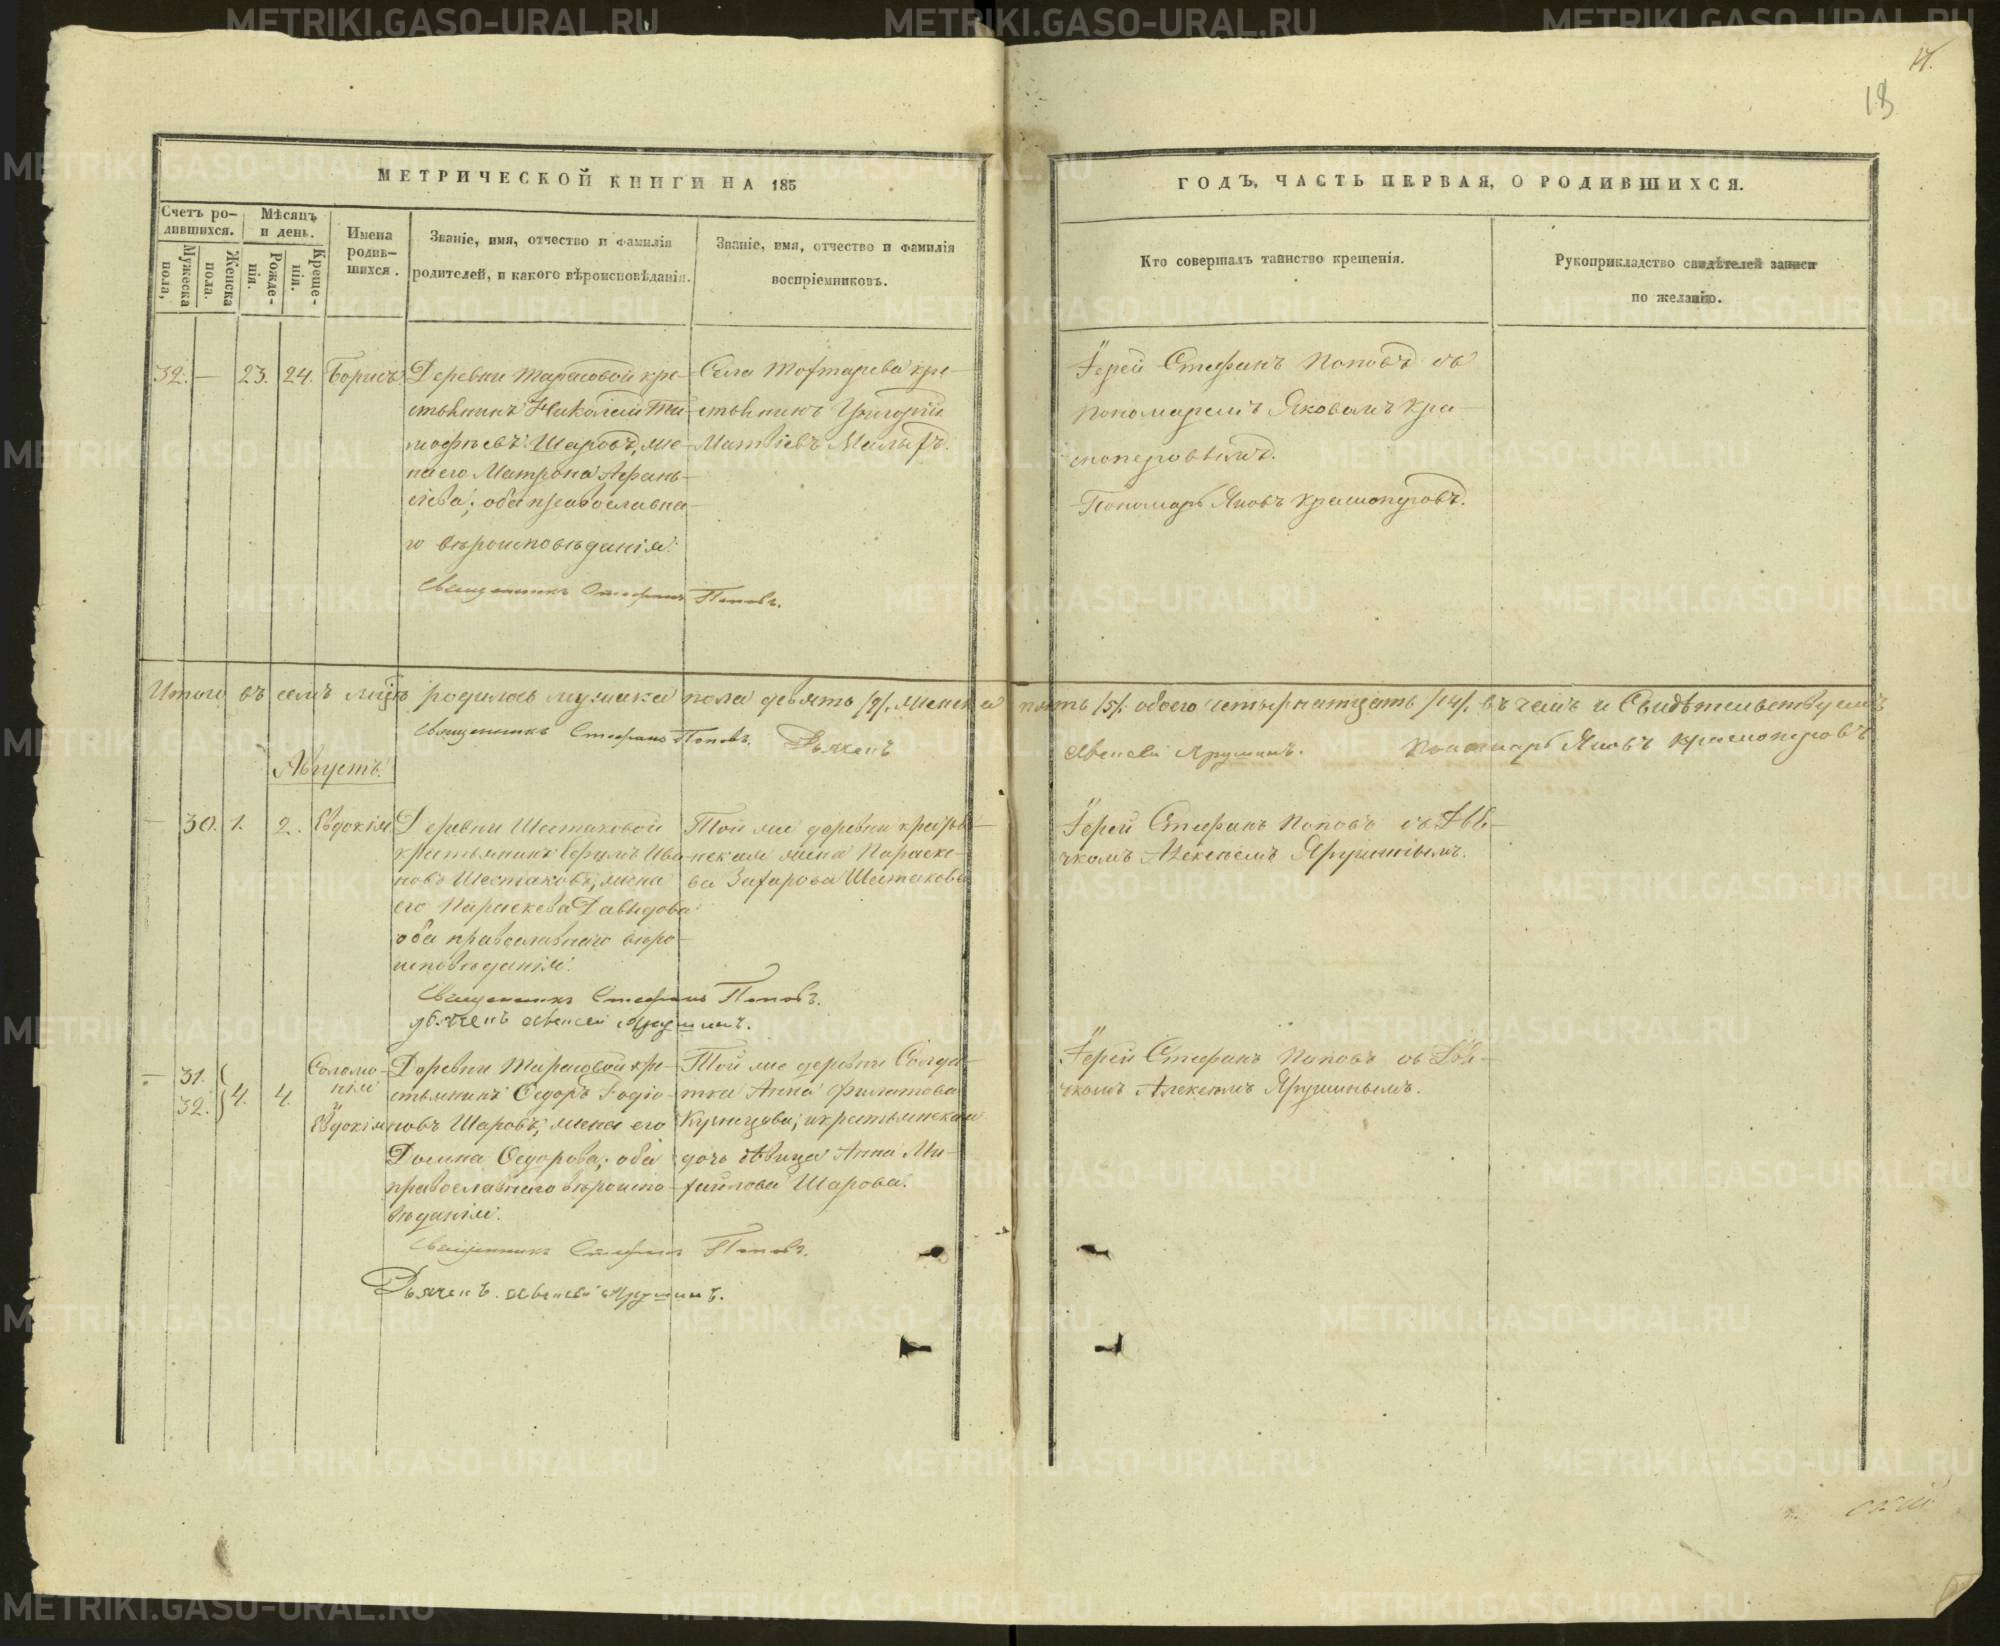 14.
18
МЕТРИЧЕСКОЙ КНИГИ НА 185
ГОДЪ, ЧАСТЬ ПЕРВАЯ, О РОДИВШИХСЯ.
Счетъ ро-
дившихся.
Мужеска
пола,
Женска
пола.
Мѣсяцъ
и день.
Рожде-
нія.
Креще-
нія.
Имена
родив-
шихся.
Званіе, имя, отчество и фамилія
родителей, и какого вѣроисповѣданія.
Званіе, имя, отчество и фамилія
воспріемниковъ.
Кто совершалъ таинство крещенія.
Рукоприкладство свидѣтелей записи
по желанію.
32. — 23. 24. Борисъ
Деревни Тарасовой кре-
стьянинъ Николай Ти-
мофѣевъ Шаровъ, же-
на его Матрона Афанась-
ева; оба православна-
го вѣроисповѣданія.
Священникъ Стефанъ Поповъ.
Села кре-
стьянинъ Григорій
Матвіевъ Малыхъ.
Іерей Стефанъ Поповъ съ
пономаремъ Яковомъ Кра-
сноперовымъ.
Пономарь Яковъ Красноперовъ.
Итого въ семъ мцѣ родилось мужска пола девять /9/. женска пять /5/. обоего четырнатцать /14/. въ чемъ и Свидѣтельствуемъ
Священникъ Стефанъ Поповъ. Дьячекъ Алексей Ярушинъ. Пономарь Яковъ Красноперовъ
Августъ.
— 30. 1. 2. Евдокія.
Деревни Шестаковой
крестьянинъ Ива-
новъ Шестаковъ, жена
его Параскева Давыдова
оба православнаго вѣро-
исповѣданія.
Священникъ Стефанъ Поповъ.
Дьячекъ Алексей Ярушинъ.
Той же деревни крестья-
нская жена Параске-
ва Захарова Шестакова
Іерей Стефанъ Поповъ съ Дья-
чкомъ Алексѣемъ Ярушинымъ.
— 31. 32. 4. 4.
Соломо-
нія
и
Евдокія
Деревни Тарасовой кре-
стьянинъ Ѳедоръ Родіо-
новъ Шаровъ, жена его
Домна Ѳедорова; оба
православнаго вѣроиспо-
вѣданія.
Священникъ Стефанъ Поповъ.
Дьячекъ Алексей Ярушинъ.
Той же деревни Солда-
тка Анна Филатова
Кузнецова; и крестьянская
дочь дѣвица Анна Ми-
хайлова Шарова.
Іерей Стефанъ Поповъ съ Дья-
чкомъ Алексѣемъ Ярушинымъ.
METRIKI.GASO-URAL.RU